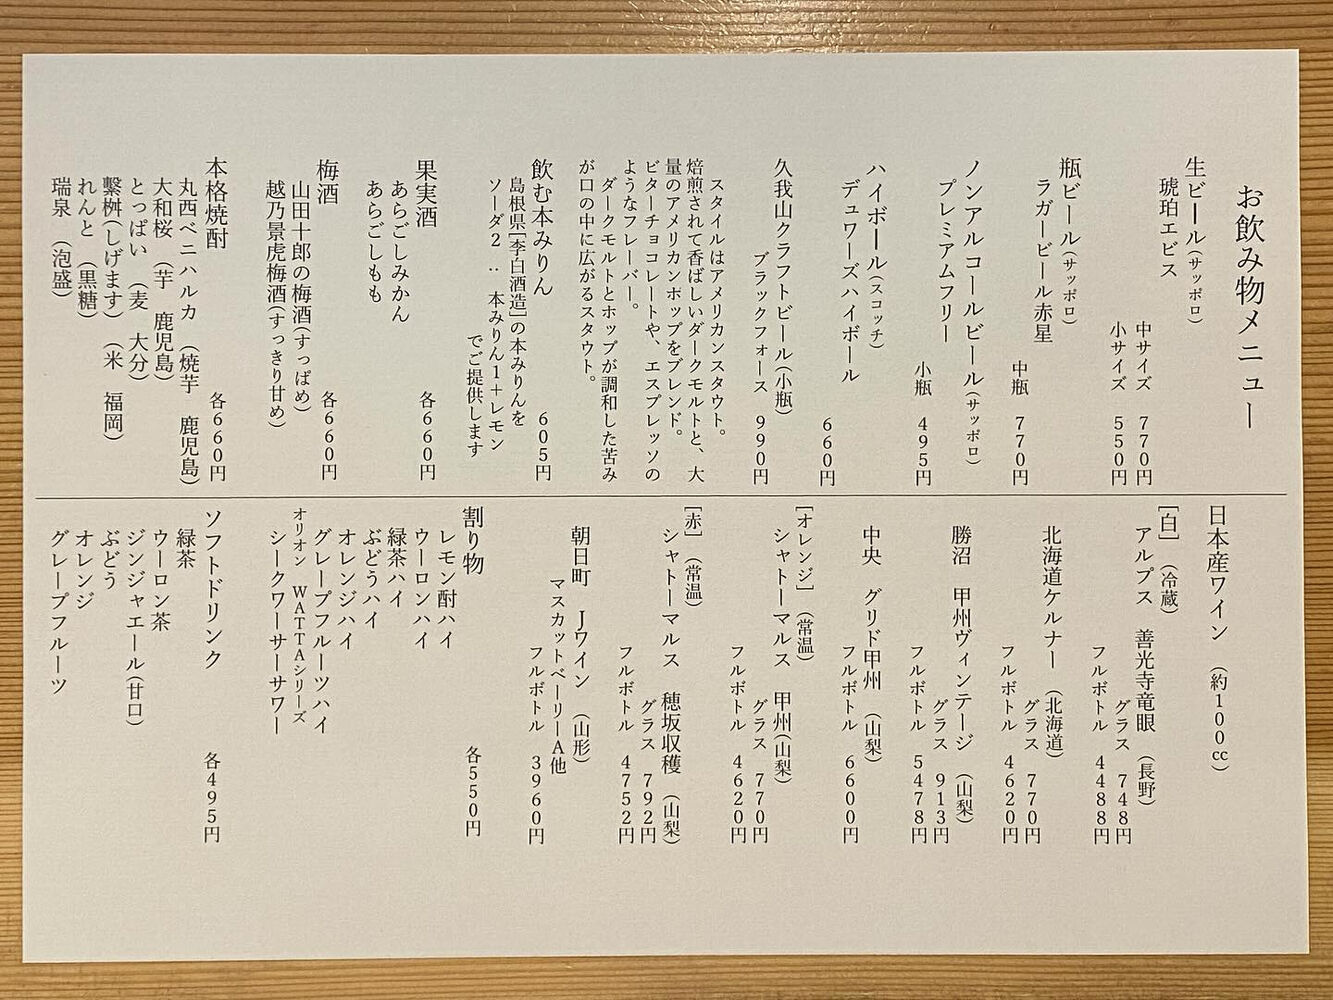 お飲み物メニュー
生ビール(サッポロ)
琥珀エビス
中サイズ 770円
小サイズ 550円
瓶ビール(サッポロ)
ラガービール赤星
中瓶 770円
ノンアルコールビール(サッポロ)
プレミアムフリー
小瓶 495円
ハイボール(スコッチ)
デュワーズハイボール
660円
久我山クラフトビール(小瓶)
ブラックフォース 990円
スタイルはアメリカンスタウト。
焙煎されて香ばしいダークモルトと、大
量のアメリカンホップをブレンド。
ビターチョコレートや、エスプレッソの
ようなフレーバー。
ダークモルトとホップが調和した苦み
が口の中に広がるスタウト。
飲む本みりん 605円
島根県[李白酒造]の本みりんを
ソーダ2:本みりん1+レモン
でご提供します
果実酒 各660円
あらごしみかん
あらごしもも
梅酒 各660円
山田十郎の梅酒(すっぱめ)
越乃景虎梅酒(すっきり甘め)
本格焼酎 各660円
丸西ベニハルカ (焼芋 鹿児島)
大和桜 (芋 鹿児島)
とっぱい (麦 大分)
繫桝(しげます) (米 福岡)
れんと (黒糖)
瑞泉 (泡盛)
日本産ワイン (約100cc)
[白] (冷蔵)
アルプス 善光寺竜眼 (長野)
グラス 748円
フルボトル 4488円
北海道ケルナー (北海道)
グラス 770円
フルボトル 4620円
勝沼 甲州ヴィンテージ (山梨)
グラス 913円
フルボトル 5478円
中央 グリド甲州 (山梨)
フルボトル 6600円
[オレンジ] (常温)
シャトーマルス 甲州(山梨)
グラス 770円
フルボトル 4620円
[赤] (常温)
シャトーマルス 穂坂収穫 (山梨)
グラス 792円
フルボトル 4752円
朝日町 Jワイン (山形)
マスカットベーリーA他
フルボトル 3960円
割り物 各550円
レモン酎ハイ
ウーロンハイ
緑茶ハイ
ぶどうハイ
オレンジハイ
グレープフルーツハイ
オリオン WATTAシリーズ
シークワーサーサワー
ソフトドリンク 各495円
緑茶
ウーロン茶
ジンジャエール(甘口)
ぶどう
オレンジ
グレープフルーツ